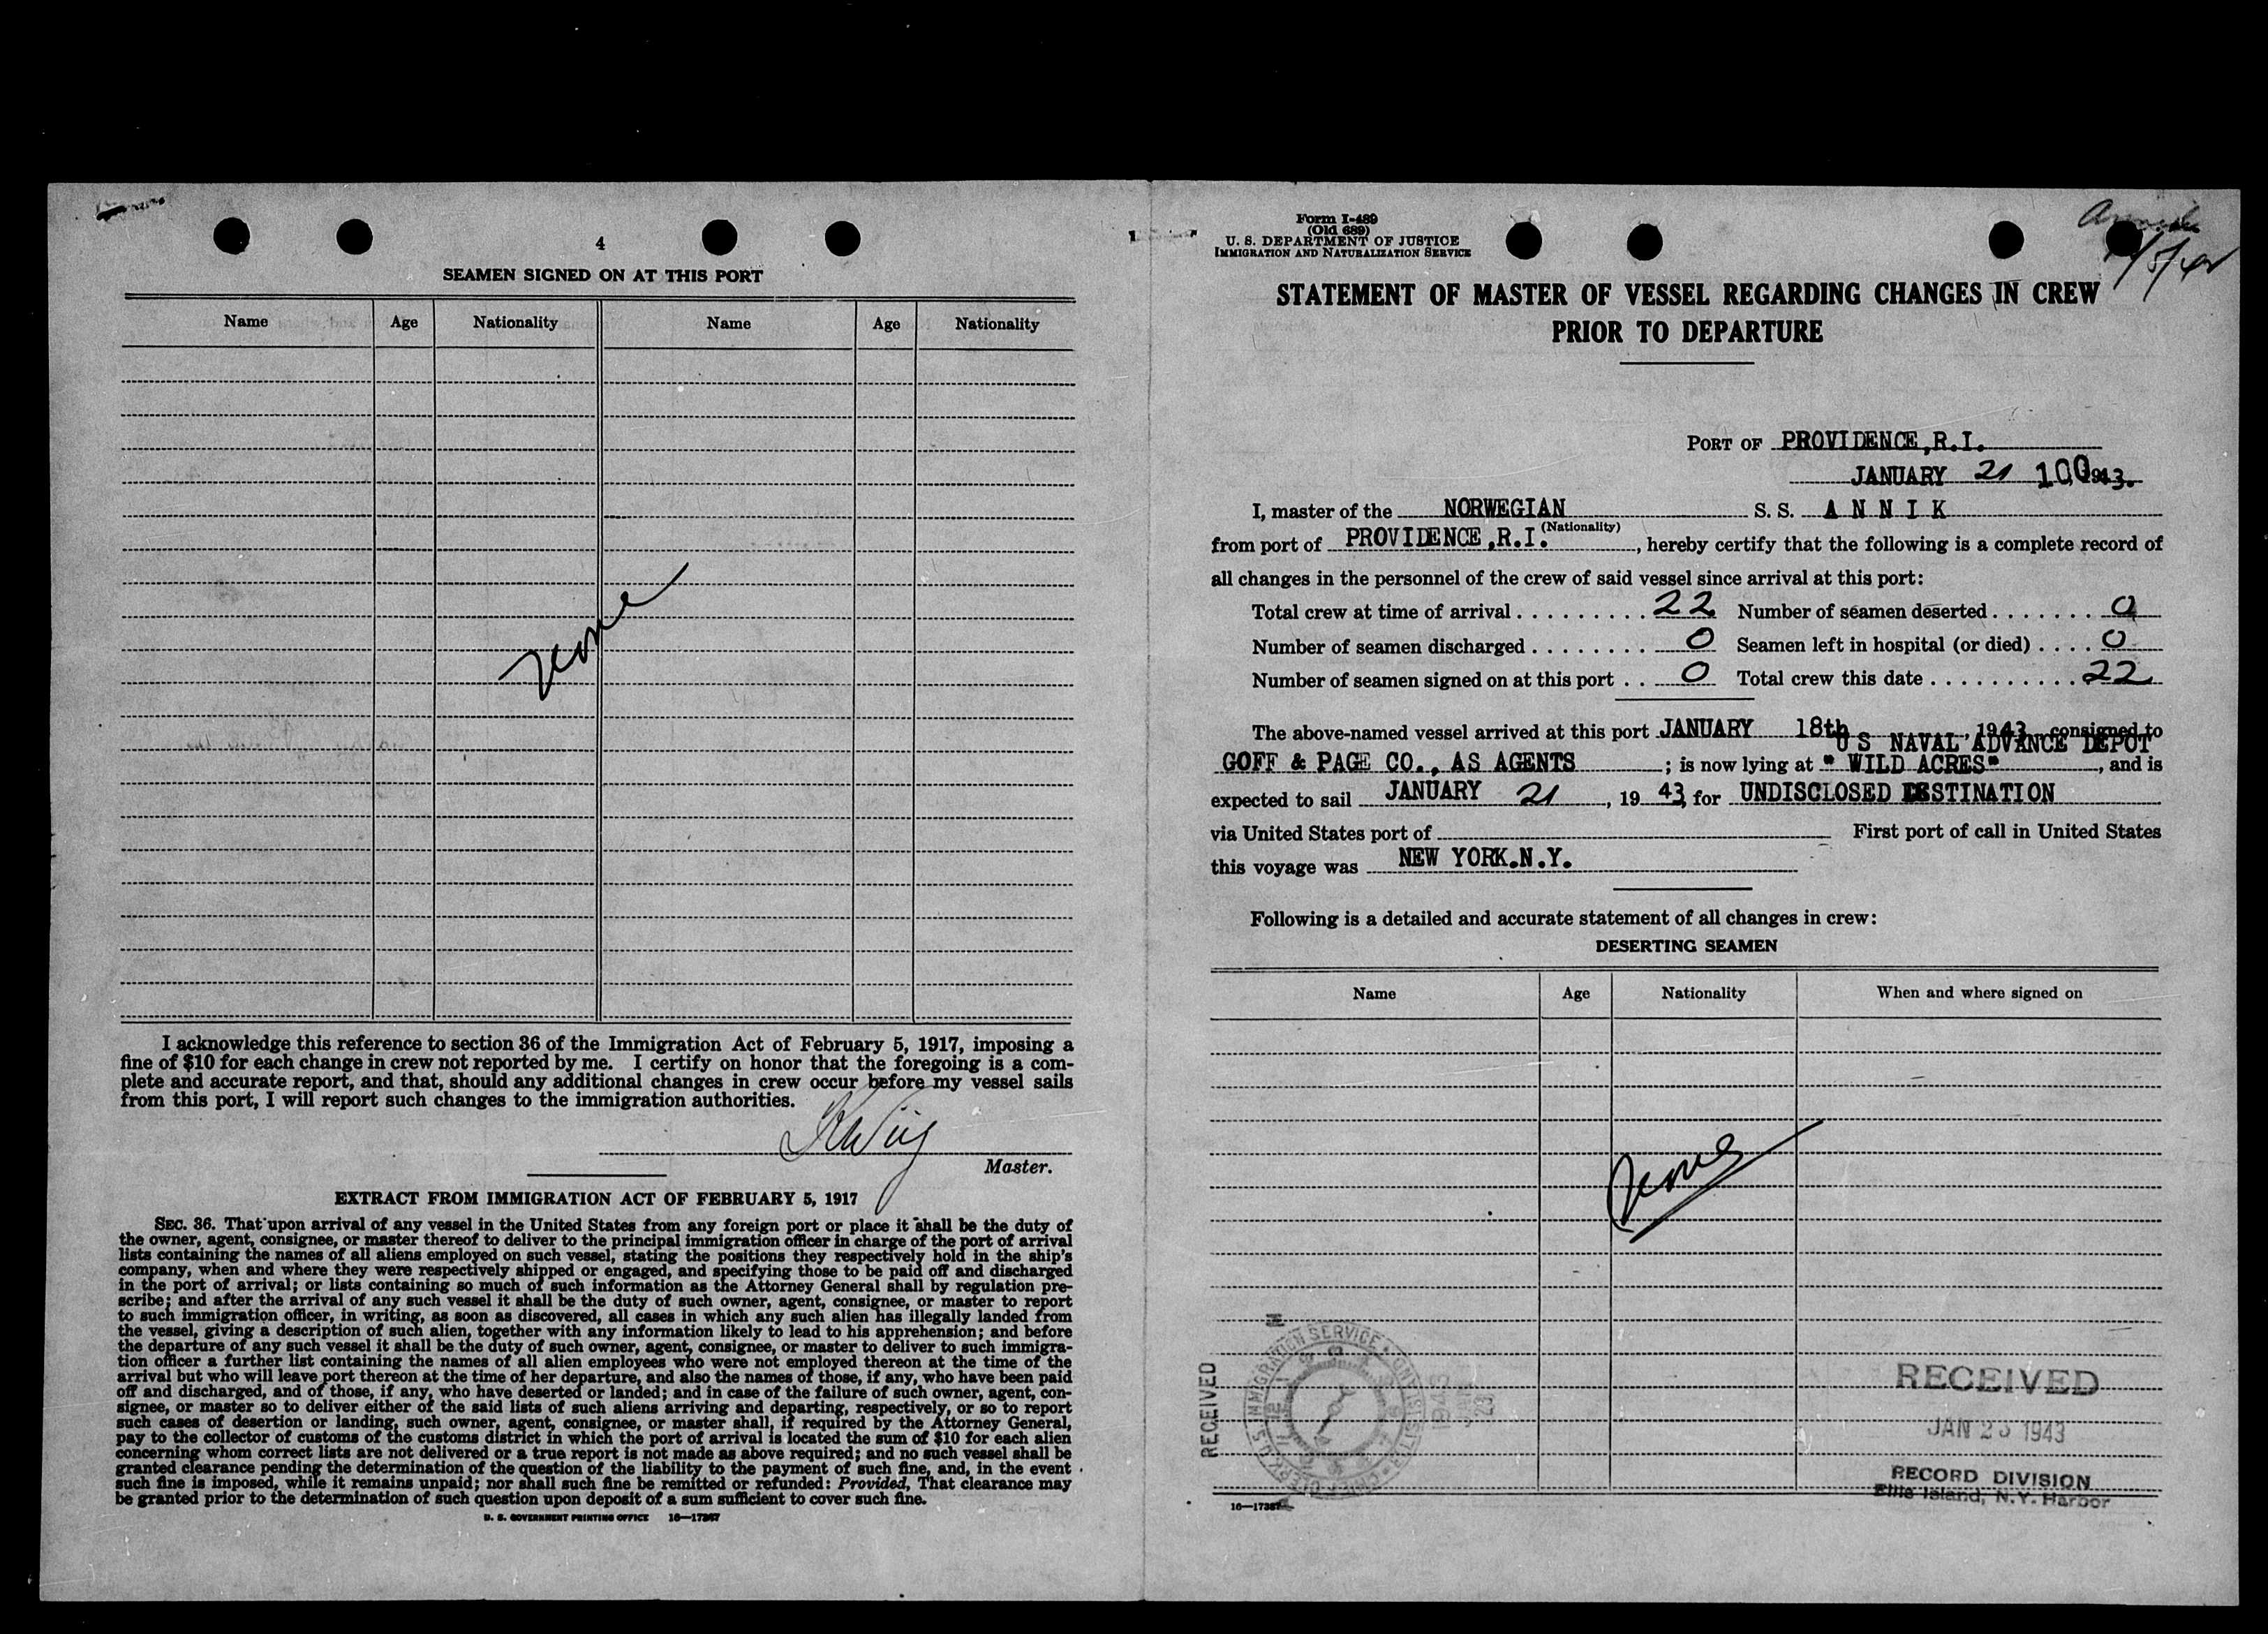 4
SEAMEN SIGNED ON AT THIS PORT
Name Age Nationality Name Age Nationality
None
I acknowledge this reference to section 36 of the Immigration Act of February 5, 1917, imposing a
fine of $10 for each change in crew not reported by me. I certify on honor that the foregoing is a com-
plete and accurate report, and that, should any additional changes in crew occur before my vessel sails
from this port, I will report such changes to the immigration authorities.
Master.
EXTRACT FROM IMMIGRATION ACT OF FEBRUARY 5, 1917
SEC. 36. That upon arrival of any vessel in the United States from any foreign port or place it shall be the duty of
the owner, agent, consignee, or master thereof to deliver to the principal immigration officer in charge of the port of arrival
lists containing the names of all aliens employed on such vessel, stating the positions they respectively hold in the ship's
company, when and where they were respectively shipped or engaged, and specifying those to be paid off and discharged
in the port of arrival; or lists containing so much of such information as the Attorney General shall by regulation pre-
scribe; and after the arrival of any such vessel it shall be the duty of such owner, agent, consignee, or master to report
to such immigration officer, in writing, as soon as discovered, all cases in which any such alien has illegally landed from
the vessel, giving a description of such alien, together with any information likely to lead to his apprehension; and before
the departure of any such vessel it shall be the duty of such owner, agent, consignee, or master to deliver to such immigra-
tion officer a further list containing the names of all alien employees who were not employed thereon at the time of the
arrival but who will leave port thereon at the time of her departure, and also the names of those, if any, who have been paid
off and discharged, and of those, if any, who have deserted or landed; and in case of the failure of such owner, agent, con-
signee, or master so to deliver either of the said lists of such aliens arriving and departing, respectively, or so to report
such cases of desertion or landing, such owner, agent, consignee, or master shall, if required by the Attorney General,
pay to the collector of customs of the customs district in which the port of arrival is located the sum of $10 for each alien
concerning whom correct lists are not delivered or a true report is not made as above required; and no such vessel shall be
granted clearance pending the determination of the question of the liability to the payment of such fine, and, in the event
such fine is imposed, while it remains unpaid; nor shall such fine be remitted or refunded: Provided, That clearance may
be granted prior to the determination of such question upon deposit of a sum sufficient to cover such fine.
U. S. GOVERNMENT PRINTING OFFICE 16—17367
Form I-489
(Old 689)
U. S. DEPARTMENT OF JUSTICE
IMMIGRATION AND NATURALIZATION SERVICE
STATEMENT OF MASTER OF VESSEL REGARDING CHANGES IN CREW
PRIOR TO DEPARTURE
PORT OF PROVIDENCE,R.I.
JANUARY 21 1943.
I, master of the NORWEGIAN S. S. A N N I K
(Nationality)
from port of PROVIDENCE,R.I. , hereby certify that the following is a complete record of
all changes in the personnel of the crew of said vessel since arrival at this port:
Total crew at time of arrival . . . . . . . . . 22 Number of seamen deserted . . . . . . . 0
Number of seamen discharged . . . . . . . . 0 Seamen left in hospital (or died) . . . . 0
Number of seamen signed on at this port . . 0 Total crew this date . . . . . . . . . . 22
The above-named vessel arrived at this port JANUARY 18th , 1943, consigned to
U S NAVAL ADVANCE DEPOT
GOFF & PAGE CO., AS AGENTS ; is now lying at " WILD ACRES" , and is
expected to sail JANUARY 21 , 19 43, for UNDISCLOSED DESTINATION
via United States port of First port of call in United States
this voyage was NEW YORK.N.Y.
Following is a detailed and accurate statement of all changes in crew:
DESERTING SEAMEN
Name Age Nationality When and where signed on
None
RECEIVED
U.S. IMMIGRATION SERVICE
RECEIVED
JAN 23 1943
RECORD DIVISION
Ellis Island, N.Y. Harbor
16—17367